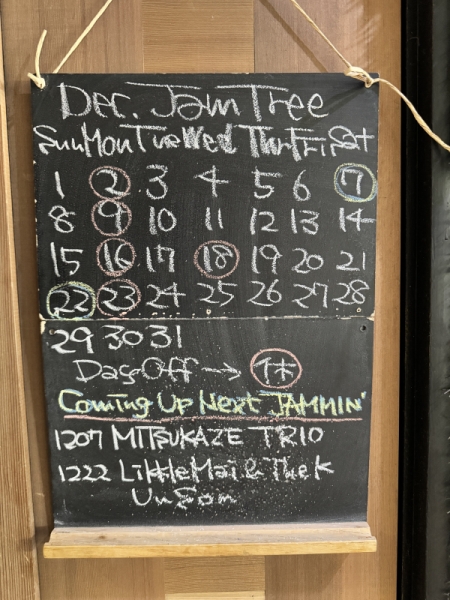 Dec. Jam Tree
Sun Mon Tue Wed Thr Fri Sat
1 2 3 4 5 6 7
8 9 10 11 12 13 14
15 16 17 18 19 20 21
22 23 24 25 26 27 28
29 30 31
Day Off → 休
Coming Up Next JAMMIN'
1207 MITSUKAZE TRIO
1222 Little Moi & The K